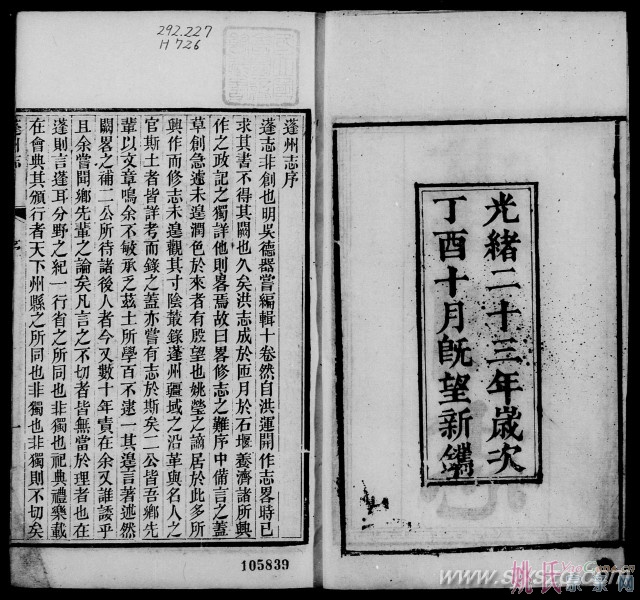 光緒二十三年歲次
丁酉十月既望新鐫
292.227
H726
蓬州志序
蓬志非創也明吳德器嘗編輯十卷然自洪運開作志畧時已
求其書不得其闕也久矣洪志成於匝月於石堰養濟諸所興
作之政記之獨詳他則畧焉故曰畧修志之難序中備言之蓋
草創急遽未遑潤色於來者有殷望也姚瑩之謫居於此多所
興作而修志未遑觀其寸陰叢錄蓬州疆域之沿革與名人之
官斯土者皆詳考而錄之蓋亦嘗有志於斯矣二公皆吾鄉先
輩以文章鳴余不敏承乏茲土所學百不逮一其遑言著述然
闕畧之補二公所待諸後人者今又數十年責在余又誰諉乎
且余嘗聞鄉先輩之論矣凡言之不切者皆無當於理者也在
蓬則言蓬耳分野之紀一行省之所同也非獨也祀典禮樂載
在會典其頒行者天下州縣之所同也非獨也非獨則不切矣
蓬州志
序
一
105839
姚氏